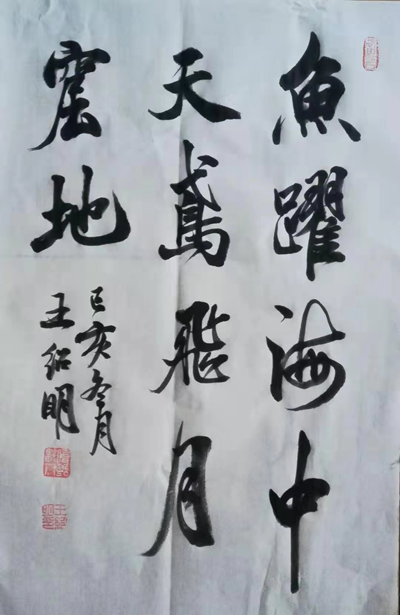 魚躍海中
天鳶飛月
窟地
己亥冬月
王紹明